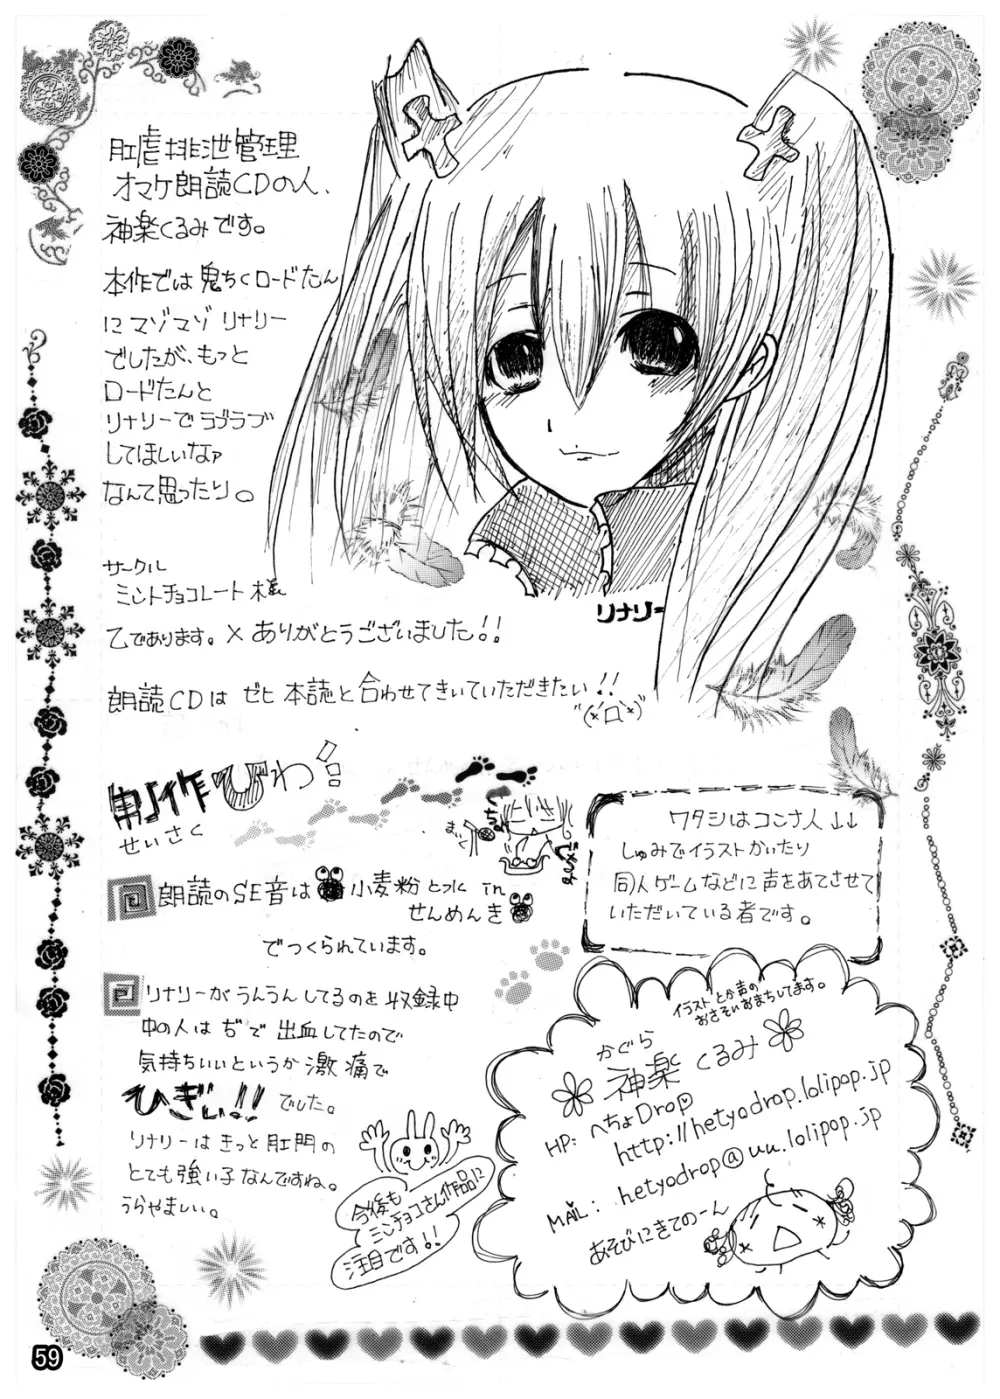 肛虐排泄管理
オマケ朗読CDの人、
神楽くるみです。
本作では鬼ちくロードたん
にマゾマゾ リナリー
でしたが、もっと
ロードたんと
リナリーでラブラブ
してほしいなァ
なんて思ったり。
サークル
ミントチョコレート様
乙であります。×ありがとうございました!!
朗読CDは ゼヒ 本誌と合わせてきいていただきたい!!
リナリー
制作びわ
せいさく
朗読のSE音は 小麦粉と水 in
せんめんき
でつくられています。
リナリーがうんうんしてるのを収録中
中の人はぢで出血してたので
気持ちいいというか激痛で
ひぎぃ!! でした。
リナリーはきっと肛門の
とても強い子なんですね。
うらやましい。
今後も
ミンチョコさん作品に
注目です!!
ワタシはコンナ人↓↓
しゅみでイラストかいたり
同人ゲームなどに声をあてさせて
いただいている者です。
イラストとか声の
おさそいおまちしてます。
かぐら
神楽くるみ
HP: へちょDrop
http://hetyodrop.lolipop.jp
MAIL: hetyodrop@uu.lolipop.jp
あそびにきてのーん
59